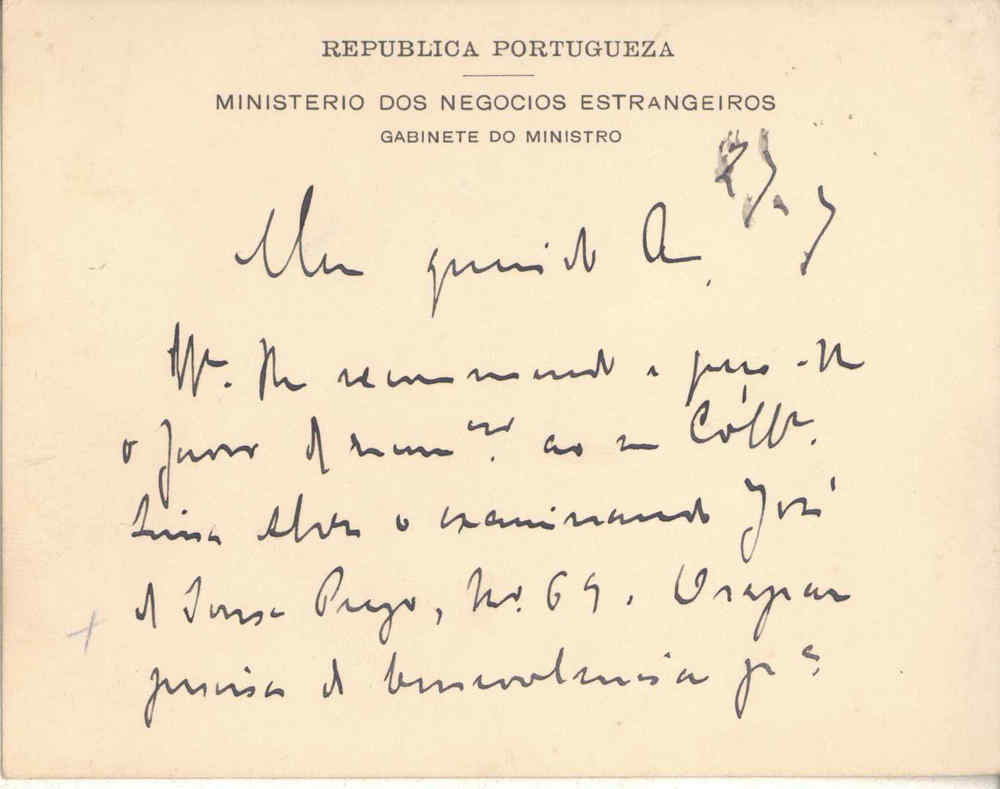 REPUBLICA PORTUGUEZA
MINISTERIO DOS NEGOCIOS ESTRANGEIROS
GABINETE DO MINISTRO
Meu querido
lhe recommendo e peço-lhe
o favor de ao seu Collª.
Lima Alves o examinando José
de Sousa Prego, No. 69. O rapaz
precisa de benevolencia pª